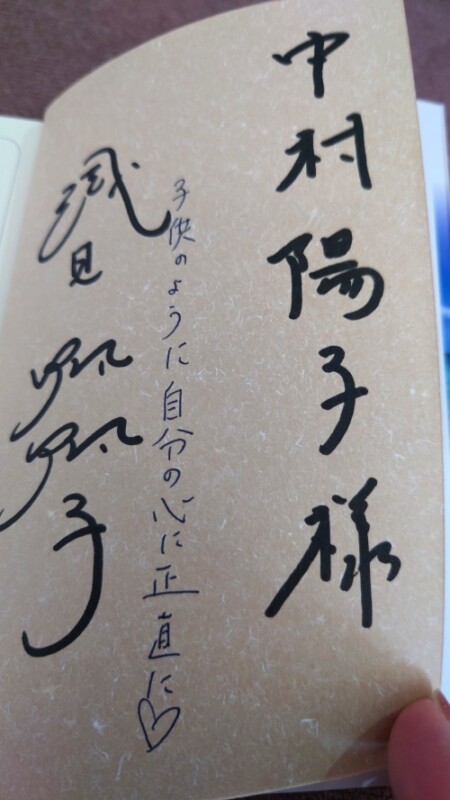 中村陽子様
子供のように自分の心に正直に♡
見
子